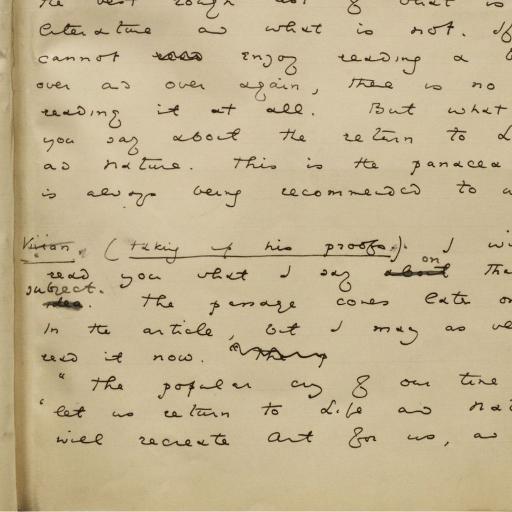 the best rough test of what is
literature and what is not. If
cannot read enjoy reading a b
over and over again, there is no
reading it at all. But what
you say about the return to L
and Nature. This is the panacea
is always being recommended to u
Vivian. (taking up his proofs). I wi
read you what I say about on tha
subject.
idea. The passage comes later on
in the article, but I may as we
read it now.
"The popular cry of our time
'let us return to Life and Nat
will recreate Art for us, an